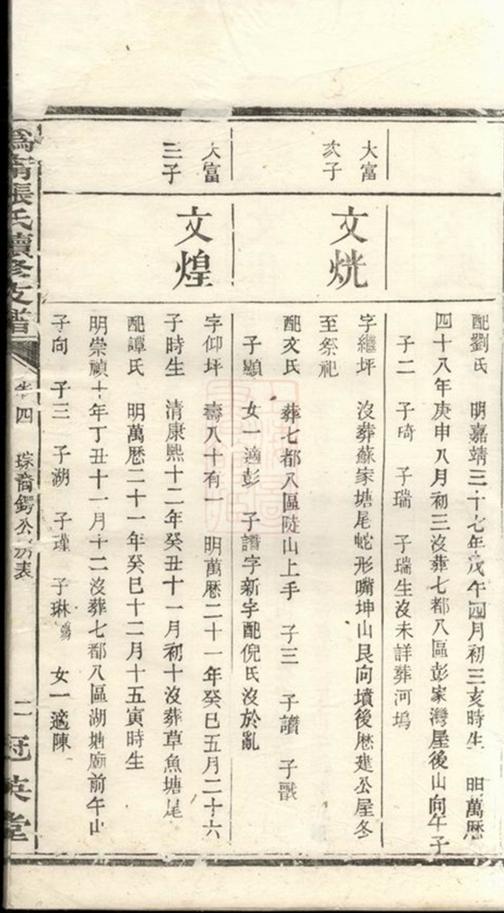 配劉氏 明嘉靖三十七年戊午四月初三亥時生 明萬厯
四十八年庚申八月初三沒葬七都八區彭家灣屋後山向午子
子二 子琦 子瑞 子瑞生沒未詳葬河塢
大富
次子
文烑
字繼坪 沒葬蘇家塘尾蛇形嘴坤山艮向墳後厯建公屋冬
至祭祀
配文氏 葬七都八區陡山上手 子三 子讃 子
子顯 女一適彭 子譜字新字配倪氏沒於亂
大富
三子
文煌
字仰坪 壽八十有一 明萬厯二十一年癸巳五月二十六
子時生 清康熙十二年癸丑十一月初十沒葬草魚塘尾
配譚氏 明萬厯二十一年癸巳十二月十五寅時生
明崇禎十年丁丑十一月十二沒葬七都八區湖塘廟前午山
子向 子三 子湖 子瑾 子琳 女一適陳
張氏續修支譜
卷十四
二
冠英堂